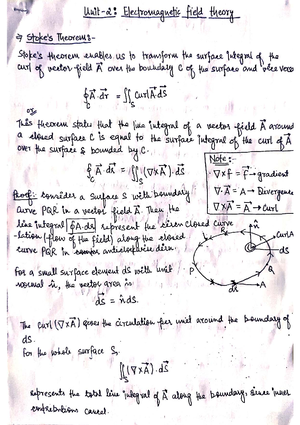 Unit-2: Electromagnetic field theory
⇒ Stoke's Theorem:-
Stoke's theorem enables us to transform the surface integral of the
curl of vector field A⃗ over the boundary C of the surface and vice versa
∮_C A⃗.dr⃗ = ∬_S Curl A⃗.dS⃗
or,
This theorem state that the line integral of a vector field A⃗ around
a closed surface C is equal to the surface integral of the curl of A⃗
over the surface S bounded by C.
∮_C A⃗.dr⃗ = ∬_S (∇×A⃗).dS⃗
Note:-
∇×f = F⃗ → gradient
∇.A⃗ = A → Divergence
∇×A⃗ = A⃗ → Curl
Proof: Consider a surface S with boundary
curve PQR in a vector field A⃗. Then the
line integral ∮A.dr represent the circu
-lation (flow of the field) along the closed
curve PQR in anticlockwise dirn.
closed curve
For a small surface element dS with unit
normal n̂, the vector area is
dS⃗ = n̂ dS.
R
curlA
n̂
dS
Q
P
A
dr
The curl (∇×A⃗) gives the circulation per unit around the boundary of
dS.
For the whole surface S,
∬_S (∇×A⃗).dS⃗
represents the total line integral of A⃗ along the boundary, since inner
contributions cancel.